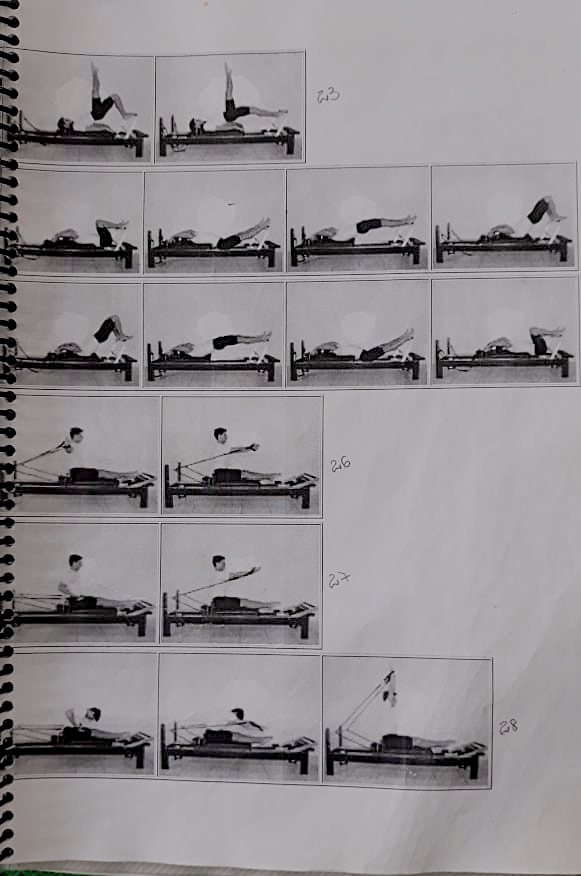 23
26
27
28